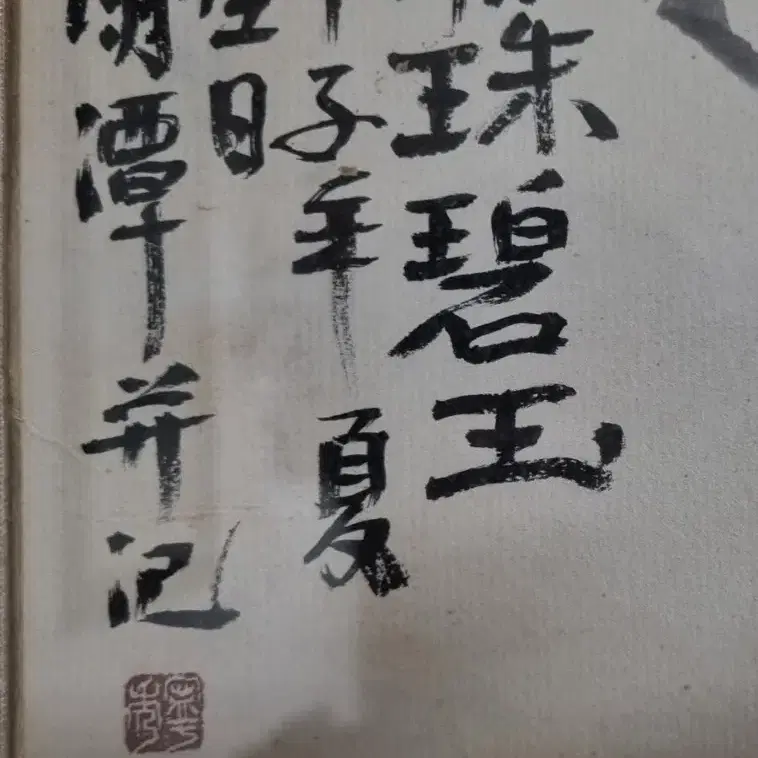 珠碧玉
子年夏
日
潭并记